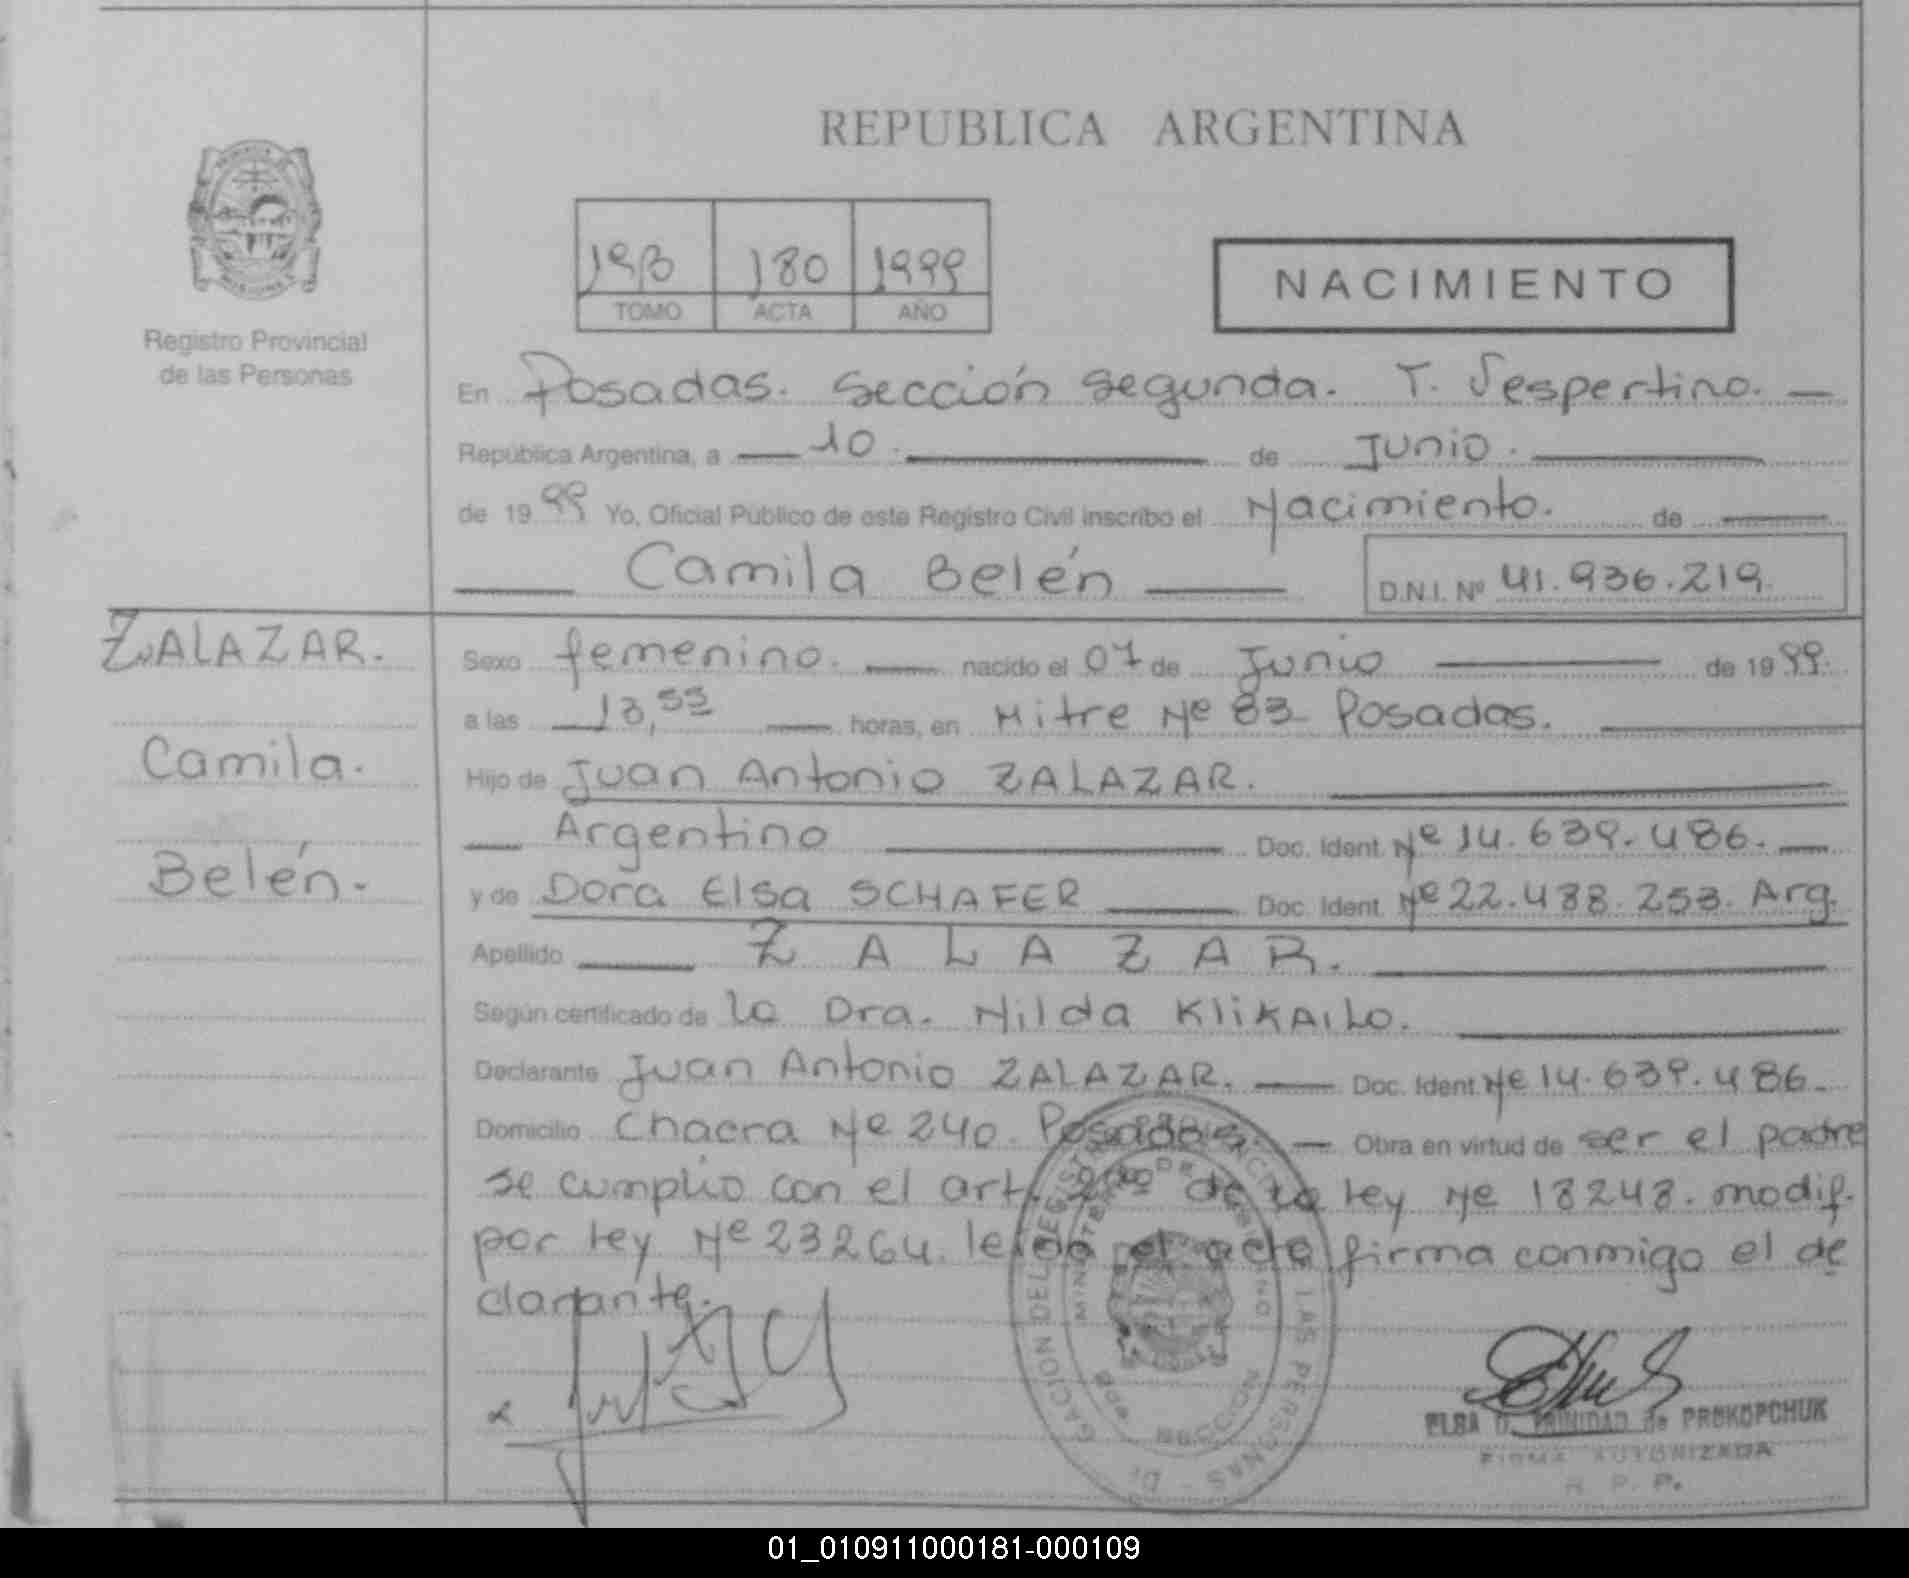 REPUBLICA ARGENTINA
193 180 1999
TOMO ACTA AÑO
NACIMIENTO
Registro Provincial
de las Personas
En Posadas. Sección Segunda. T. Vespertino.
República Argentina, a 10. de Junio.
de 1999 Yo, Oficial Público de este Registro Civil inscribo el Nacimiento. de
Camila Belén D.N.I. Nº 41.936.219.
ZALAZAR.
Camila.
Belén.
Sexo femenino. nacido el 07 de Junio de 1999.
a las horas, en Mitre Nº 83 Posadas.
Hijo de Juan Antonio ZALAZAR.
Argentino Doc. Ident. Nº 14.639.486.
y de Dora Elsa SCHAFER Doc. Ident. Nº 22.488.253. Arg.
Apellido ZALAZAR.
Según certificado de la Dra. Nilda KliKAilo.
Declarante Juan Antonio ZALAZAR. Doc. Ident. Nº 14.639.486.
Domicilio Chacra Nº 240. Posadas. Obra en virtud de ser el padre
se cumplió con el art. 2do de la ley Nº 18248. modif.
por ley Nº 23264. leída el acta firma conmigo el de
clarante.
ELSA D. TRINIDAD de PROKOPCHUK
FIRMA AUTORIZADA
R. P. P.
01_010911000181-000109